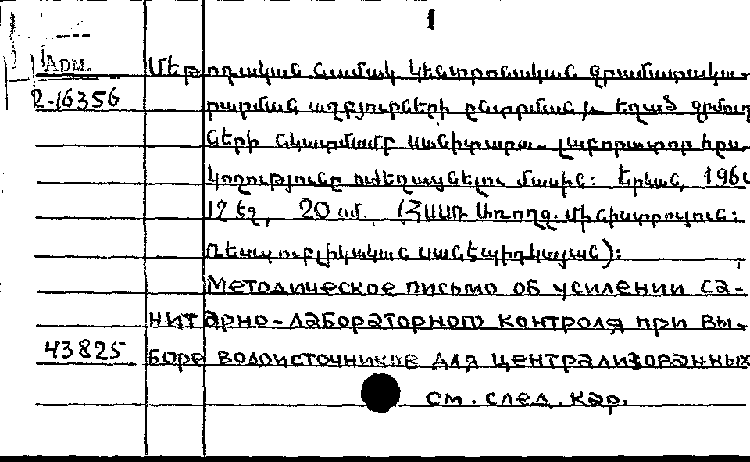 1
Арм.
2-16356
Մեթոդական նամակ կենտրոնական ջրամատակա-
րարման աղբյուրների ընտրման և եղած ջրմուղ
ների նկատմամբ սանիտարա-լաբորատոր հսկ
կողությունը ուժեղացնելու մասին: Երևան, 196
12 էջ, 20 սմ. (ՀՍՍՌ Առողջ. մինիստրություն:
Ռեսպուբլիկական սանէպիդկայան):
Методическое письмо об усилении са-
нитарно-лабораторного контроля при вы-
43825
боре водоисточников для централизованных
см. след. кар.